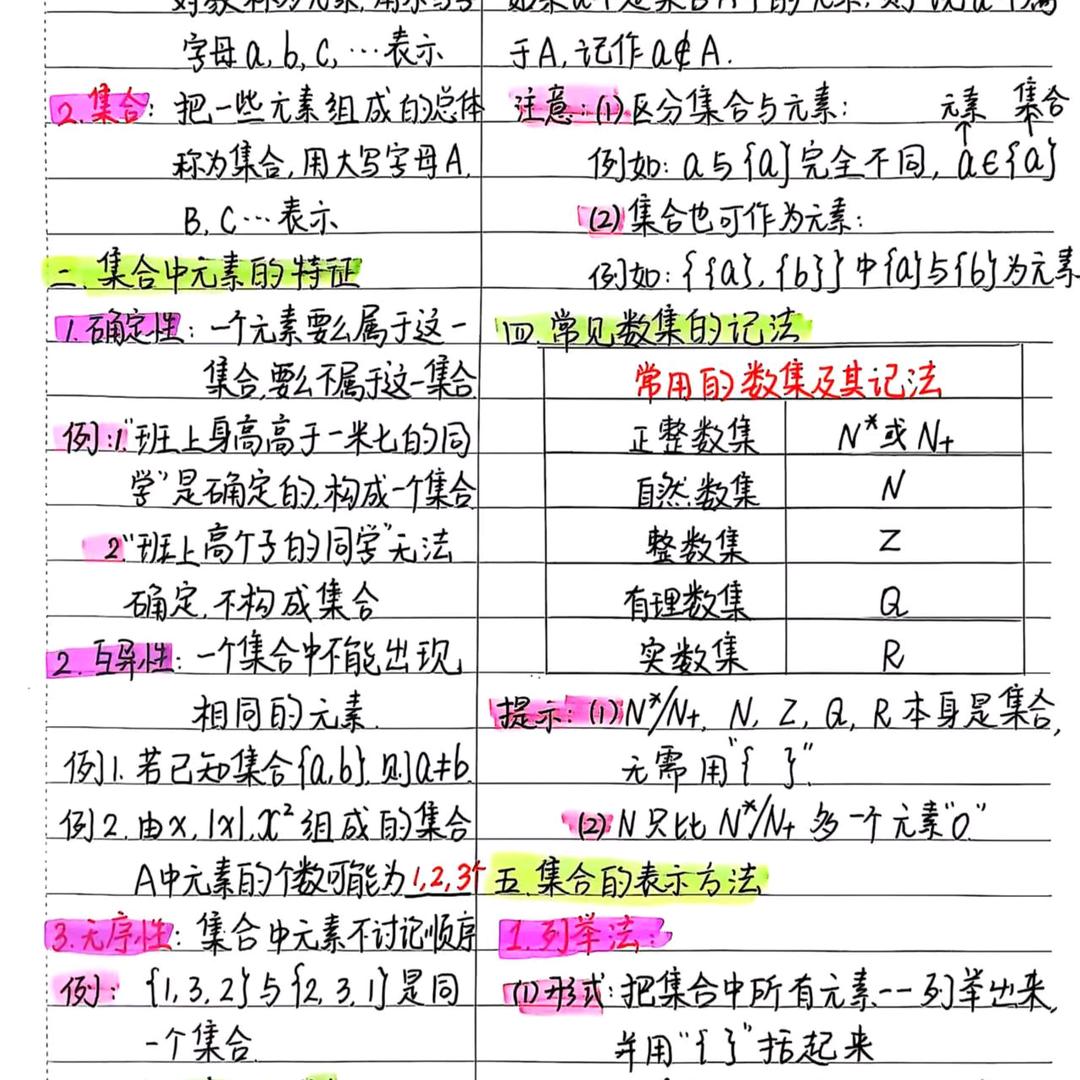 字母a,b,c,…表示
2.集合:把一些元素组成的总体
称为集合,用大写字母A,
B,C…表示
二.集合中元素的特征
1.确定性:一个元素要么属于这一
集合,要么不属于这一集合
例:1."班上身高高于一米七的同
学"是确定的,构成一个集合
2."班上高个子的同学"无法
确定,不构成集合
2.互异性:一个集合中不能出现
相同的元素.
例1.若已知集合{a,b},则a≠b
例2.由x,|x|,x²组成的集合
A中元素的个数可能为1,2,3个
3.无序性:集合中元素不讨记顺序
例:{1,3,2}与{2,3,1}是同
一个集合
于A,记作a∉A.
注意:(1)区分集合与元素:
元素 集合
例如:a与{a}完全不同,a∈{a}
(2)集合也可作为元素:
例如:{{a},{b}}中{a}与{b}为元素
四.常见数集的记法
常用的数集及其记法
正整数集 N*或N+
自然数集 N
整数集 Z
有理数集 Q
实数集 R
提示:(1)N*/N+,N,Z,Q,R本身是集合,
无需用"{ }"
(2)N只比N*/N+多一个元素"0"
五.集合的表示方法
1.列举法:
(1)形式:把集合中所有元素一一列举出来,
并用"{ }"括起来